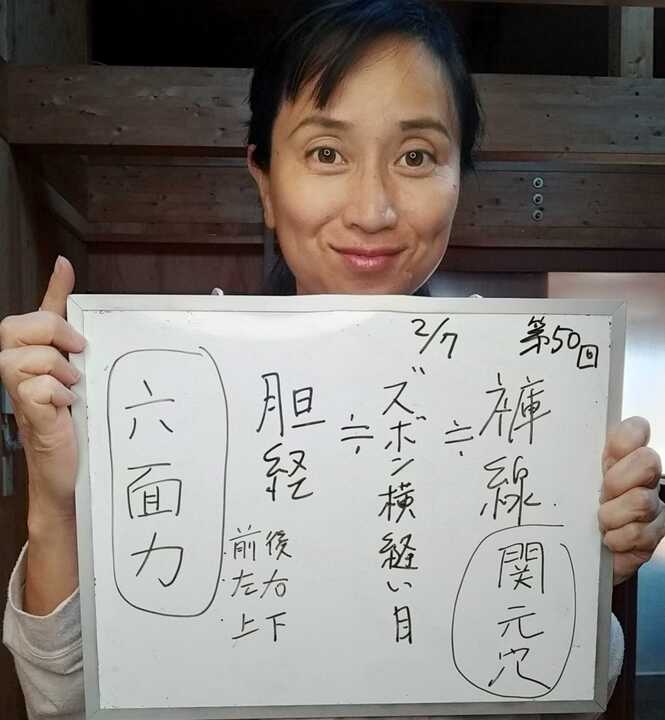 2/7 第50回
裤線
関元穴
≒
ズボン横経い目
≒
胆経
前後
左右
上下
六面力